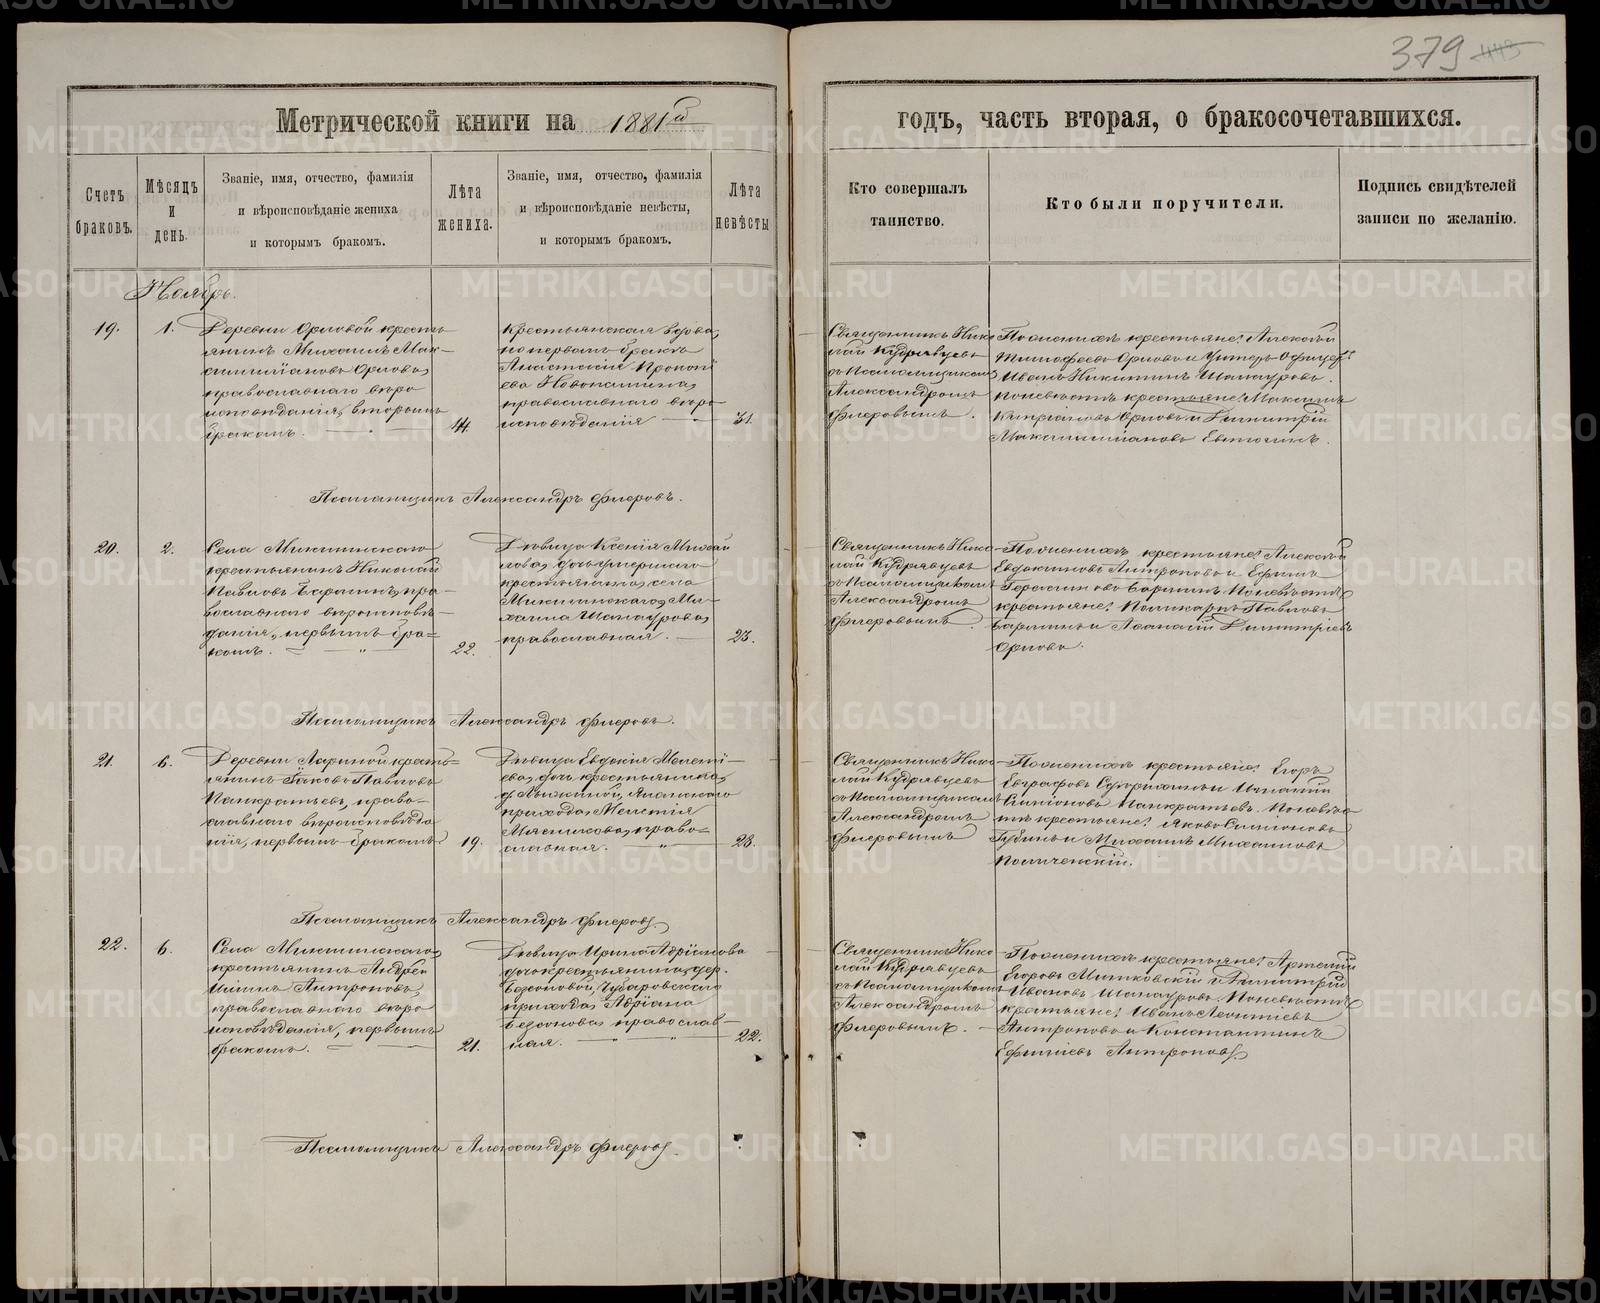 379 443
Метрической книги на 1881й
годъ, часть вторая, о бракосочетавшихся.
Счетъ браковъ.
Мѣсяцъ и день.
Званіе, имя, отчество, фамилія
и вѣроисповѣданіе жениха
и которымъ бракомъ.
Лѣта жениха.
Званіе, имя, отчество, фамилія
и вѣроисповѣданіе невѣсты,
и которымъ бракомъ.
Лѣта невѣсты
Кто совершалъ
таинство.
Кто были поручители.
Подпись свидѣтелей
записи по желанію.
Ноябрь.
19.
1.
Деревни Орловой кресть
янинъ Михаилъ Мак-
симиліановъ Орловъ,
православнаго вѣро
исповѣданія, вторымъ
бракомъ.
44.
Крестьянская вдова,
по первомъ бракѣ
Анастасія Прокопі
ева Новоксшина,
православнаго вѣро-
исповѣданія
31.
Священникъ Нико
лай Кудрявцевъ
съ Псаломщикомъ
Александромъ
Флеровымъ.
По женихѣ крестьяне: Алексѣй
Тимофеевъ Орловъ и Унтеръ-Офицеръ
Иванъ Никитинъ Шанауровъ.
По невѣстѣ крестьяне: Максимъ
Кипріановъ Орловъ и Димитрій
Максимиліановъ Евтюгинъ.
Псаломщикъ Александръ Флеровъ.
20.
2.
Села Микшинскаго
крестьянинъ Николай
Павловъ Баринъ, пра-
вославнаго вѣроисповѣ-
данія, первымъ бра-
комъ.
22.
Дѣвица Ксенія Михаи
лова, дочь умершаго
крестьянина села
Микшинскаго, Ми-
хаила Шанаурова,
православная.
23.
Священникъ Нико
лай Кудрявцевъ
съ Псаломщикомъ
Александромъ
Флеровымъ.
По женихѣ крестьяне: Алексѣй
Евдокимовъ Антроповъ и Ефимъ
Герасимовъ Баринъ. По невѣстѣ
крестьяне: Поликарпъ Павловъ
Баринъ и Афанасій Димитріевъ
Орловъ.
Псаломщикъ Александръ Флеровъ.
21.
6.
Деревни Лариной кресть-
янинъ Іаковъ Павловъ
Панкратьевъ, право-
славнаго вѣроисповѣда
нія, первымъ бракомъ
19.
Дѣвица Евдокія Мелеті-
ева, дочь крестьянина,
прихода, Мелетія
Мясникова, право-
славная.
23.
Священникъ Нико
лай Кудрявцевъ
съ Псаломщикомъ
Александромъ
Флеровымъ
По женихѣ крестьяне: Егоръ
Евграфовъ и Игнатій
Симіоновъ Панкратьевъ. По невѣс
тѣ крестьяне: Яковъ Симіоновъ
Губинъ и Михаилъ Михаиловъ
Псаломщикъ Александръ Флеровъ.
22.
6.
Села Микшинскаго,
крестьянинъ Андрей
Ильинъ Антроповъ,
православнаго вѣро
исповѣданія, первымъ
бракомъ.
21.
Дѣвица Ирина Адріанова
дочь крестьянина, дер.
Безсоновой, Чубаровскаго
прихода, Адріана
Безсонова, православ-
ная.
22.
Священникъ Нико
лай Кудрявцевъ
съ Псаломщикомъ
Александромъ
Флеровымъ.
По женихѣ крестьяне: Артемій
Егоровъ Митковскій и Димитрій
Ивановъ Шанауровъ. По невѣстѣ
крестьяне: Иванъ Леонтіевъ
Антроповъ и Константинъ
Ефимовъ Антроповъ.
Псаломщикъ Александръ Флеровъ.
METRIKI.GASO-URAL.RU